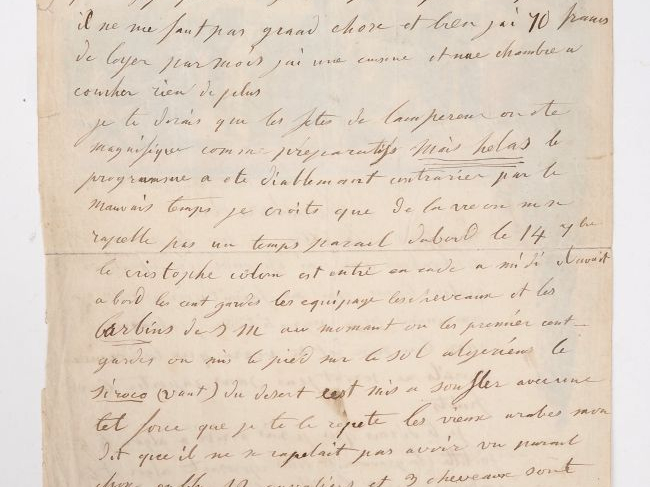 il ne me faut pas grand chose et bien j'ai 70 francs
de loyer par mois j'ai une cuisine et une chambre a
coucher rien de plus
je te dirais que les fetes de lampereur on ete
magnifique comme préparatifs mais helas le
programme a ete diablement contrarier par le
mauvais temps je croits que de la vie on ne
rapelle pas un temps parail dabord le 14 7bre
le cristophe colon est entre en rade a midi il avait
a bord les cent gardes les equipage les cheveaux et les
barbins de S M au momant ou les premier cent-
gardes on mis le pied sur le sol algeriens le
siroco (vant) du desert cest mis a soufler avec une
tel force que je te le repete les vieux arabes mon
dit que il ne se rapelait pas avoir vu parail
chose et 3 cheveaux sont